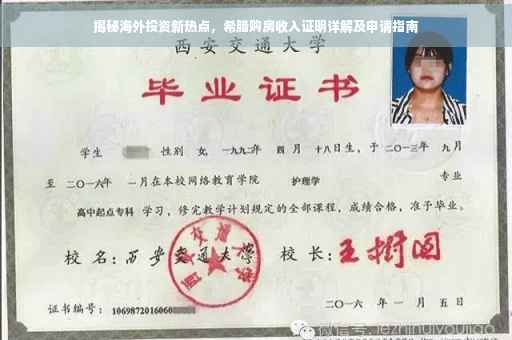 揭秘海外投资新热点，希腊购房收入证明详解及申请指南
西安交通大学
毕业证书
学生 性别 女, 一九九二年 四月 十八日生, 于二〇一三年 九月
至 二〇一六年 一月在本校网络教育学院 护理学 专业
高中起点专科 学习, 修完教学计划规定的全部课程, 成绩合格, 准予毕业。
校名: 西安交通大学 校长: 王树国
西安交通大学
证书编号: 1069872016060
二〇一六年 一月 五日
微信号: jezhinuiyoujiao